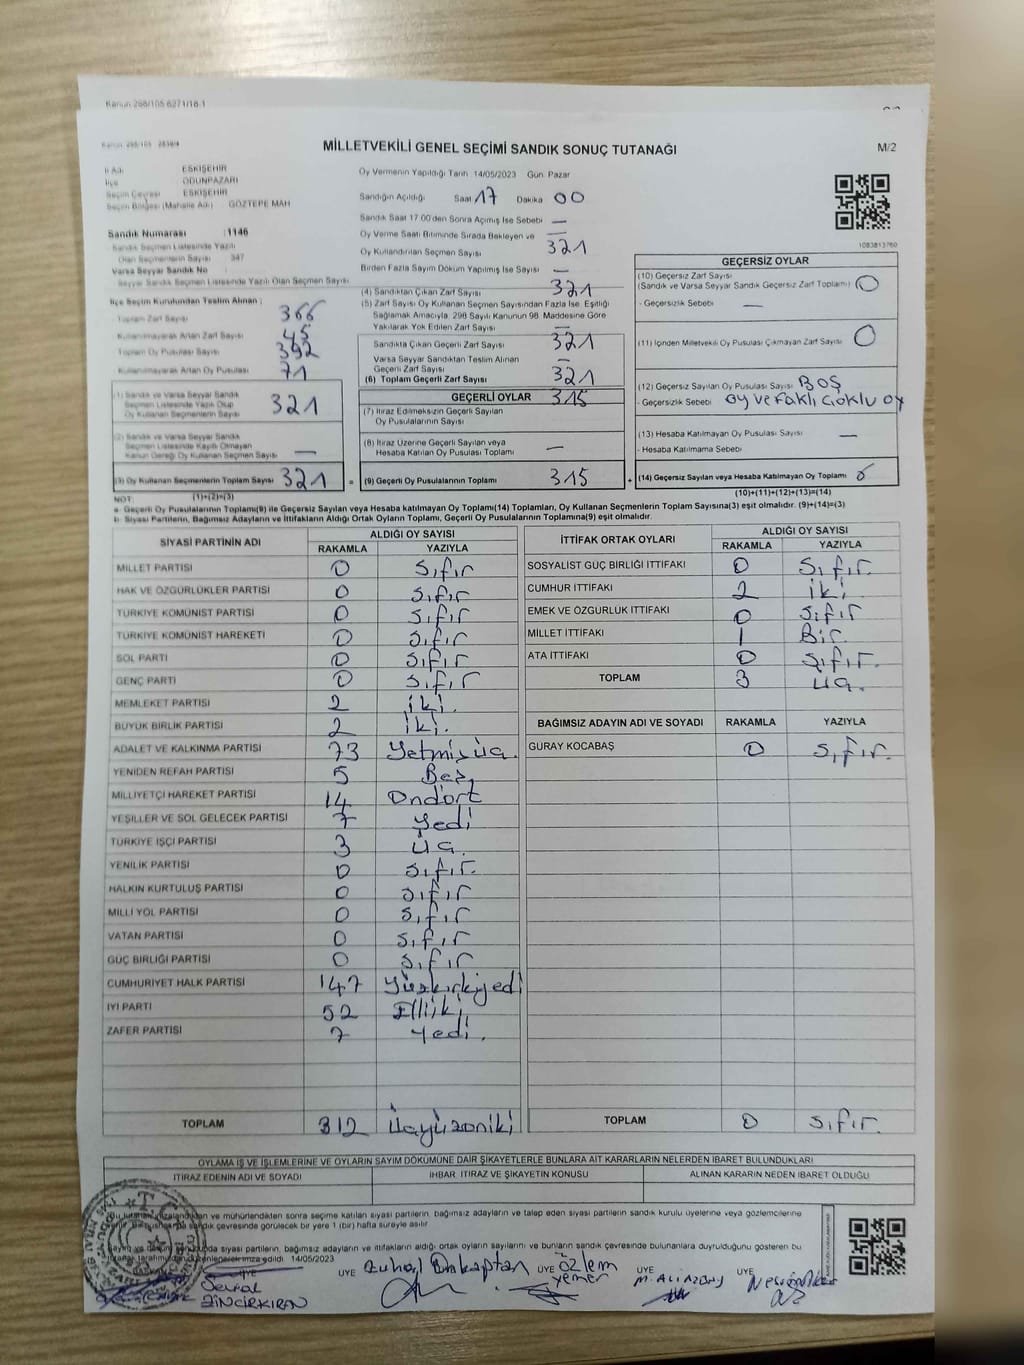 Kanun 298/105 6271/18-1
MİLLETVEKİLİ GENEL SEÇİMİ SANDIK SONUÇ TUTANAĞI
M/2
İl Adı ESKİŞEHİR
İlçe ODUNPAZARI
Seçim Çevresi ESKİŞEHİR
Seçim Bölgesi (Mahalle Adı) GÖZTEPE MAH
Sandık Numarası :1146
Sandık Seçmen Listesinde Yazılı
Olan Seçmenlerin Sayısı 347
Varsa Seyyar Sandık No
Seyyar Sandık Seçmen Listesinde Yazılı Olan Seçmen Sayısı
İlçe Seçim Kurulundan Teslim Alınan :
Toplam Zarf Sayısı 366
Kullanılmayarak Artan Zarf Sayısı 45
Toplam Oy Pusulası Sayısı 392
Kullanılmayarak Artan Oy Pusulası 71
(1) Sandık ve Varsa Seyyar Sandık
Seçmen Listesinde Yazılı Olup
Oy Kullanan Seçmenlerin Sayısı 321
(2) Sandık ve Varsa Seyyar Sandık
Seçmen Listesinde Kayıtlı Olmayan
Kanun Gereği Oy Kullanan Seçmen Sayısı —
(3) Oy Kullanan Seçmenlerin Toplam Sayısı 321
Oy Vermenin Yapıldığı Tarih 14/05/2023 Gün Pazar
Sandığın Açıldığı Saat 17 Dakika 00
Sandık Saat 17:00'den Sonra Açılmış İse Sebebi —
Oy Verme Saati Bitiminde Sırada Bekleyen ve —
Oy Kullandırılan Seçmen Sayısı 321
Birden Fazla Sayım Döküm Yapılmış İse Sayısı —
(4) Sandıktan Çıkan Zarf Sayısı 321
(5) Zarf Sayısı Oy Kullanan Seçmen Sayısından Fazla İse, Eşitliği
Sağlamak Amacıyla 298 Sayılı Kanunun 98. Maddesine Göre
Yakılarak Yok Edilen Zarf Sayısı —
Sandıkta Çıkan Geçerli Zarf Sayısı 321
Varsa Seyyar Sandıktan Teslim Alınan
Geçerli Zarf Sayısı —
(6) Toplam Geçerli Zarf Sayısı 321
GEÇERLİ OYLAR 315
(7) İtiraz Edilmeksizin Geçerli Sayılan
Oy Pusulalarının Sayısı
(8) İtiraz Üzerine Geçerli Sayılan veya
Hesaba Katılan Oy Pusulası Toplamı —
= (9) Geçerli Oy Pusulalarının Toplamı 315
1083813760
GEÇERSİZ OYLAR
(10) Geçersiz Zarf Sayısı
(Sandık ve Varsa Seyyar Sandık Geçersiz Zarf Toplamı) 0
- Geçersizlik Sebebi —
(11) İçinden Milletvekili Oy Pusulası Çıkmayan Zarf Sayısı 0
(12) Geçersiz Sayılan Oy Pusulası Sayısı BOŞ
- Geçersizlik Sebebi oy ve faklı çoklu oy
(13) Hesaba Katılmayan Oy Pusulası Sayısı —
- Hesaba Katılmama Sebebi
+ (14) Geçersiz Sayılan veya Hesaba Katılmayan Oy Toplamı 6
NOT: (1)+(2)=(3) (10)+(11)+(12)+(13)=(14)
a- Geçerli Oy Pusulalarının Toplamı(9) ile Geçersiz Sayılan veya Hesaba katılmayan Oy Toplamı(14) Toplamları, Oy Kullanan Seçmenlerin Toplam Sayısına(3) eşit olmalıdır. (9)+(14)=(3)
b- Siyasi Partilerin, Bağımsız Adayların ve İttifakların Aldığı Ortak Oyların Toplamı, Geçerli Oy Pusulalarının Toplamına(9) eşit olmalıdır.
SİYASİ PARTİNİN ADI ALDIĞI OY SAYISI
RAKAMLA YAZIYLA
MİLLET PARTİSİ 0 Sıfır
HAK VE ÖZGÜRLÜKLER PARTİSİ 0 Sıfır
TÜRKİYE KOMÜNİST PARTİSİ 0 Sıfır
TÜRKİYE KOMÜNİST HAREKETİ 0 Sıfır
SOL PARTİ 0 Sıfır
GENÇ PARTİ 0 Sıfır
MEMLEKET PARTİSİ 2 iki.
BÜYÜK BİRLİK PARTİSİ 2 iki.
ADALET VE KALKINMA PARTİSİ 73 Yetmişüç.
YENİDEN REFAH PARTİSİ 5 Beş,
MİLLİYETÇİ HAREKET PARTİSİ 14 Ondört
YEŞİLLER VE SOL GELECEK PARTİSİ 7 Yedi
TÜRKİYE İŞÇİ PARTİSİ 3 Üç.
YENİLİK PARTİSİ 0 Sıfır.
HALKIN KURTULUŞ PARTİSİ 0 Sıfır
MİLLİ YOL PARTİSİ 0 Sıfır
VATAN PARTİSİ 0 Sıfır
GÜÇ BİRLİĞİ PARTİSİ 0 Sıfır
CUMHURİYET HALK PARTİSİ 147 Yüzkırkyedi
İYİ PARTİ 52 Elliiki
ZAFER PARTİSİ 7 Yedi.
TOPLAM 312 Üçyüzoniki
İTTİFAK ORTAK OYLARI ALDIĞI OY SAYISI
RAKAMLA YAZIYLA
SOSYALİST GÜÇ BİRLİĞİ İTTİFAKI 0 Sıfır.
CUMHUR İTTİFAKI 2 iki
EMEK VE ÖZGÜRLÜK İTTİFAKI 0 Sıfır
MİLLET İTTİFAKI 1 Bir.
ATA İTTİFAKI 0 Sıfır.
TOPLAM 3 Üç.
BAĞIMSIZ ADAYIN ADI VE SOYADI RAKAMLA YAZIYLA
GÜRAY KOCABAŞ 0 Sıfır.
TOPLAM 0 Sıfır.
OYLAMA İŞ VE İŞLEMLERİNE VE OYLARIN SAYIM DÖKÜMÜNE DAİR ŞİKAYETLERLE BUNLARA AİT KARARLARIN NELERDEN İBARET BULUNDUKLARI
İTİRAZ EDENİN ADI VE SOYADI İHBAR, İTİRAZ VE ŞİKAYETİN KONUSU ALINAN KARARIN NEDEN İBARET OLDUĞU
mühürlendikten sonra seçime katılan siyasi partilerin, bağımsız adayların ve talep eden siyasi partilerin sandık kurulu üyelerine veya gözlemcilerine
sandık çevresinde görülecek bir yere 1 (bir) hafta süreyle asılır
siyasi partilerin, bağımsız adayların ve ittifakların aldığı ortak oyların sayılarını ve bunların sandık çevresinde bulunanlara duyrulduğunu gösteren bu
14/05/2023
ÜYE Seval ZİNCİRKIRAN
ÜYE
ÜYE Özlem yemer
ÜYE
ÜYE